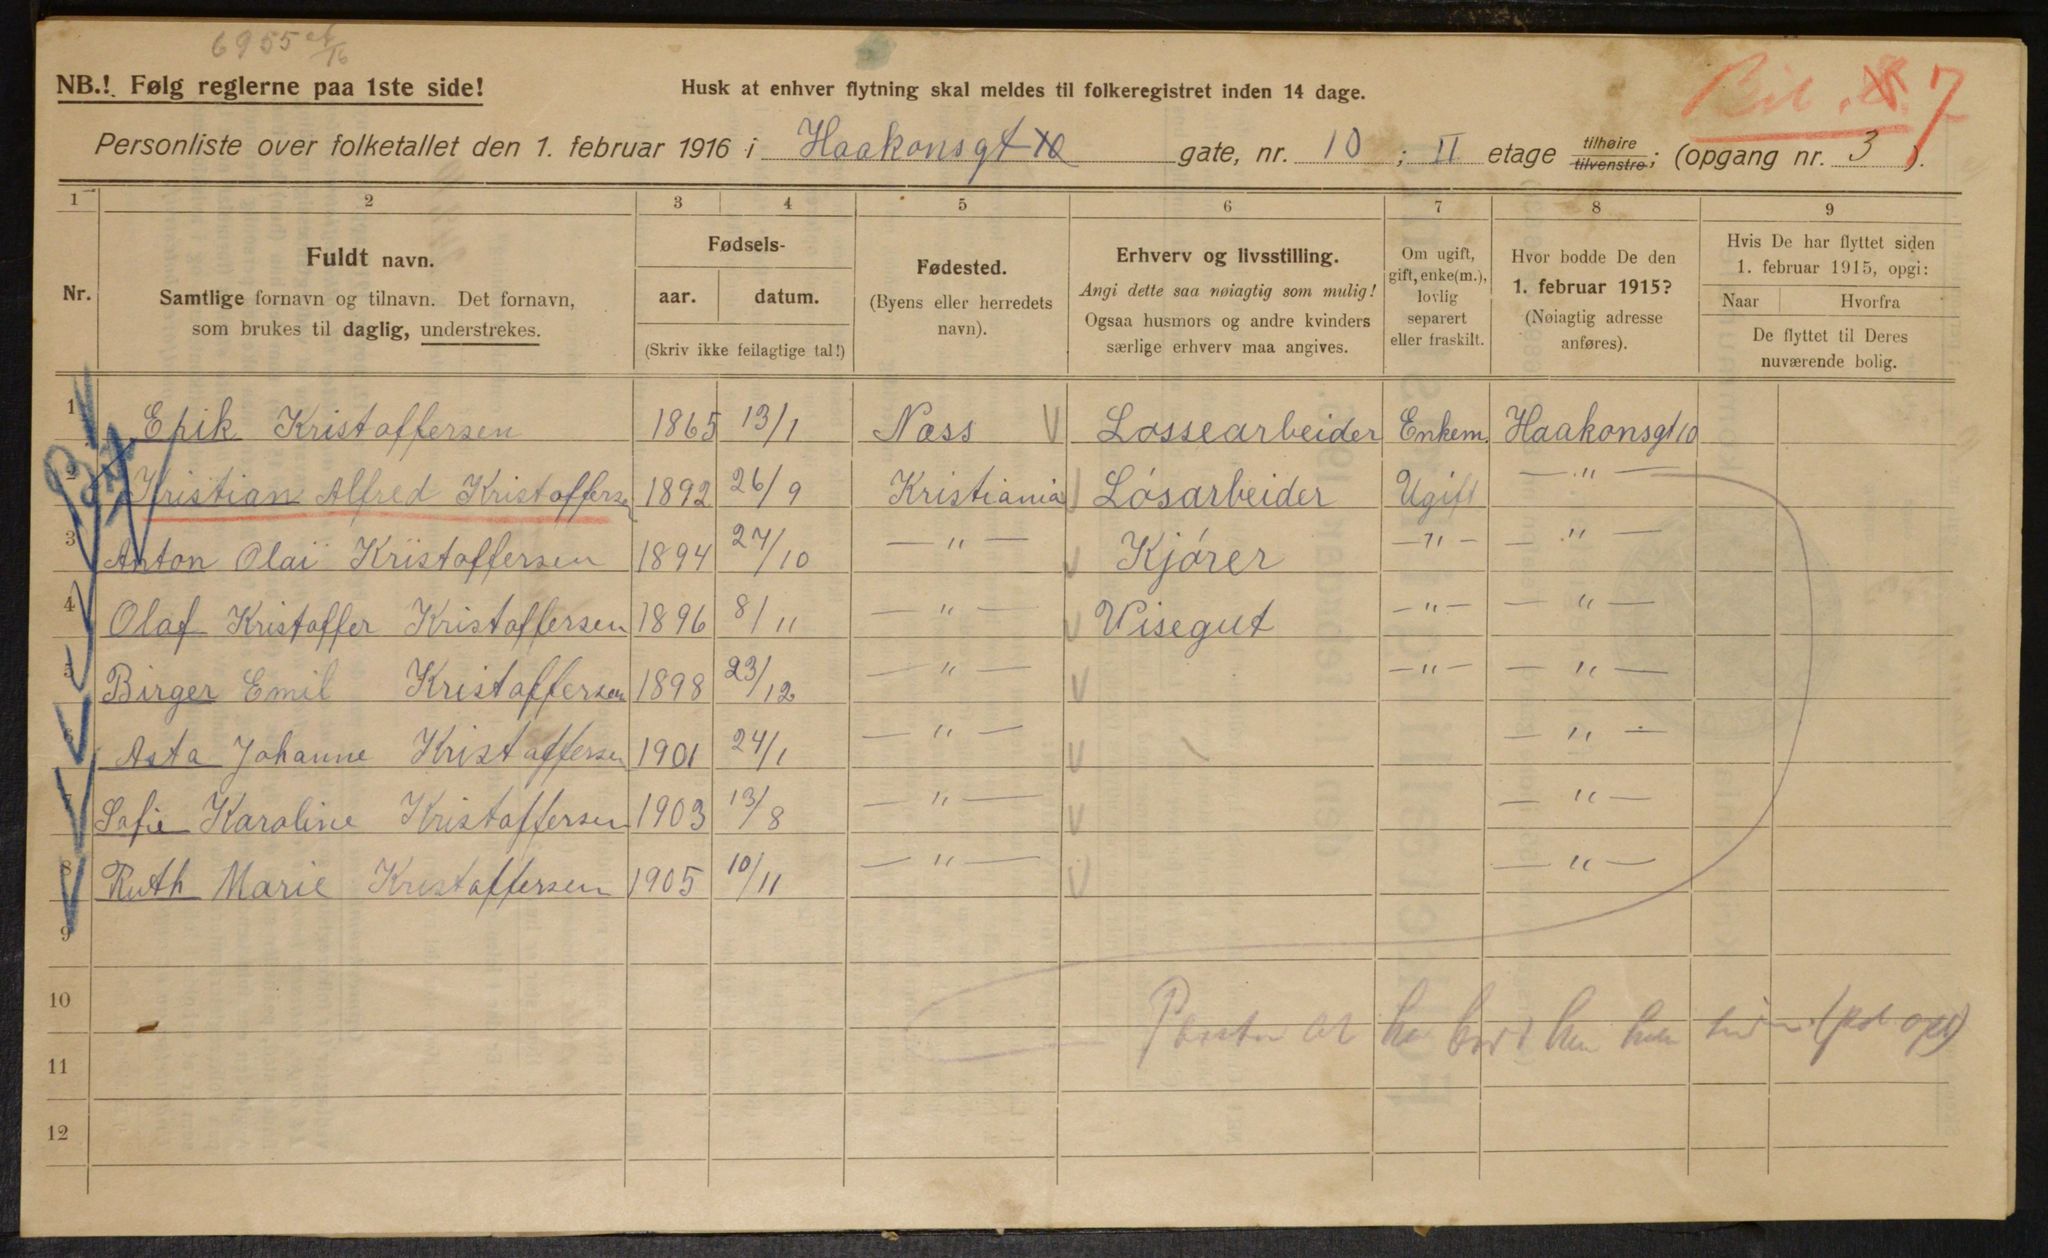 6955
NB.! Følg reglerne paa 1ste side!
Husk at enhver flytning skal meldes til folkeregistret inden 14 dage.
Bil. 7
Personliste over folketallet den 1. februar 1916 i Haakonsgt gate, nr. 10 ; II etage tilhøire tilvenstre; (opgang nr. 3 ).
1 2 3 4 5 6 7 8 9
Nr.
Fuldt navn.
Samtlige fornavn og tilnavn. Det fornavn,
som brukes til daglig, understrekes.
Fødsels-
aar. datum.
(Skriv ikke feilagtige tal!)
Fødested.
(Byens eller herredets
navn).
Erhverv og livsstilling.
Angi dette saa nøiagtig som mulig!
Ogsaa husmors og andre kvinders
særlige erhverv maa angives.
Om ugift,
gift, enke(m.),
lovlig
separert
eller fraskilt.
Hvor bodde De den
1. februar 1915?
(Nøiagtig adresse
anføres).
Hvis De har flyttet siden
1. februar 1915, opgi:
Naar Hvorfra
De flyttet til Deres
nuværende bolig.
1 Erik Kristoffersen 1865 13/1 Næss Lossearbeider Enkem. Haakonsgt 10
2 Kristian Alfred Kristoffersen 1892 26/9 Kristiania Løsarbeider Ugift — " —
3 Anton Olai Kristoffersen 1894 27/10 — " — Kjører — " — — " —
4 Olaf Kristoffer Kristoffersen 1896 8/11 — " — Visegut — " — — " —
5 Birger Emil Kristoffersen 1898 23/12 — " — — " — — " —
6 Asta Johanne Kristoffersen 1901 24/1 — " — — " —
7 Sofie Karoline Kristoffersen 1903 13/8 — " — — " —
8 Ruth Marie Kristoffersen 1905 10/11 — " — — " —
9
10
11
12